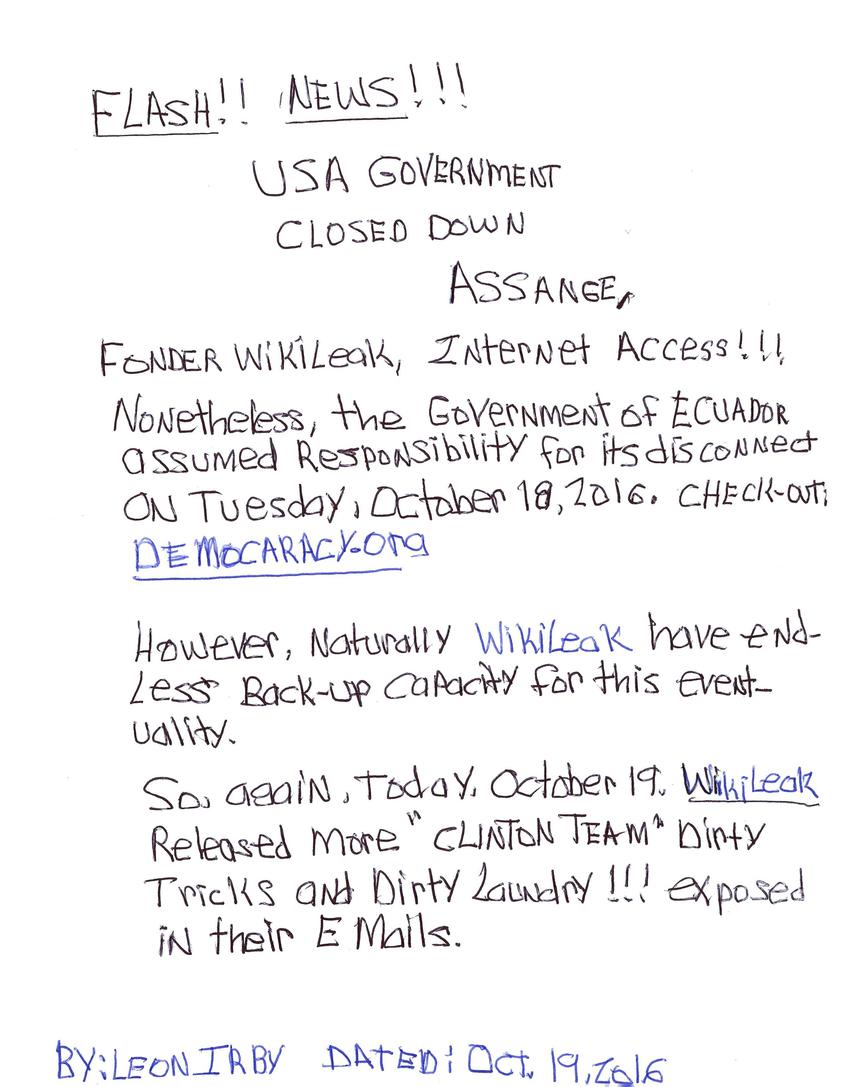 FLASH!! NEWS!!!
USA GOVERNMENT
CLOSED DOWN
ASSANGE,
FONDER WiKiLeak, INterNet Access!!!
NoNetheless, the GoverNmeNt of ECUADOR
assumed ResPoNsibility for its discoNNect
ON Tuesday, October 18, 2016. CHECK-out:
DEMOCARACY.Org
However, Naturally WikiLeak have eNd-
Less Back-up Capacity for this eveNt-
uality.
So, agaiN, Today, October 19, WikiLeak
Released More "CLINTON TEAM" Dirty
Tricks aNd Dirty Laundry!!! exposed
iN their E Mails.
BY: LEON IRBY DATED: Oct. 19, 2016